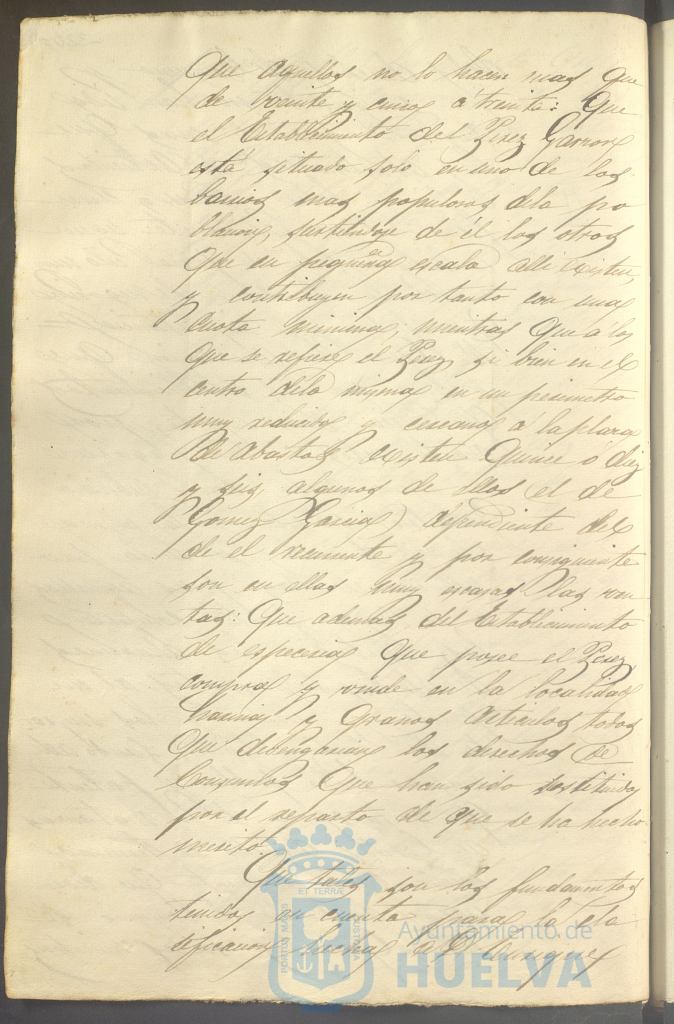 que aquellos no lo hacen mas que
de veinte y cinco á treinta: Que
el Establecimiento del Perez Garzon
está situado solo en uno de los
barrios mas populosos dela po
blacion, surtiendose de él los otros
que en pequeña escala alli existen,
y contribuyen por tanto con una
cuota minima; mientras que á los
que se refiere el Perez, si bien en el
centro dela misma en un perimetro
muy reducido y cercano a la plaza
de abastos existen quince ó diez
y seis, algunos de ellos (el de
Gomez Garcia) dependiente del
de el recurrente y por consiguiente
son en ellos muy escasas las ven
tas: Que además del Establecimiento
de especeria que posee el Perez,
compra y vende en la localidad
harinas y granos articulos todos
que devengarian los derechos de
Consumos que han sido sostituidos
por el reparto de que se ha hecho
merito.
Que tales son los fundamentos
tenidos en cuenta para la cla
sificacion hecha á D. Enrique
PORTUS MARIS
ET TERRÆ
CUSTODIA
Ayuntamiento de
HUELVA